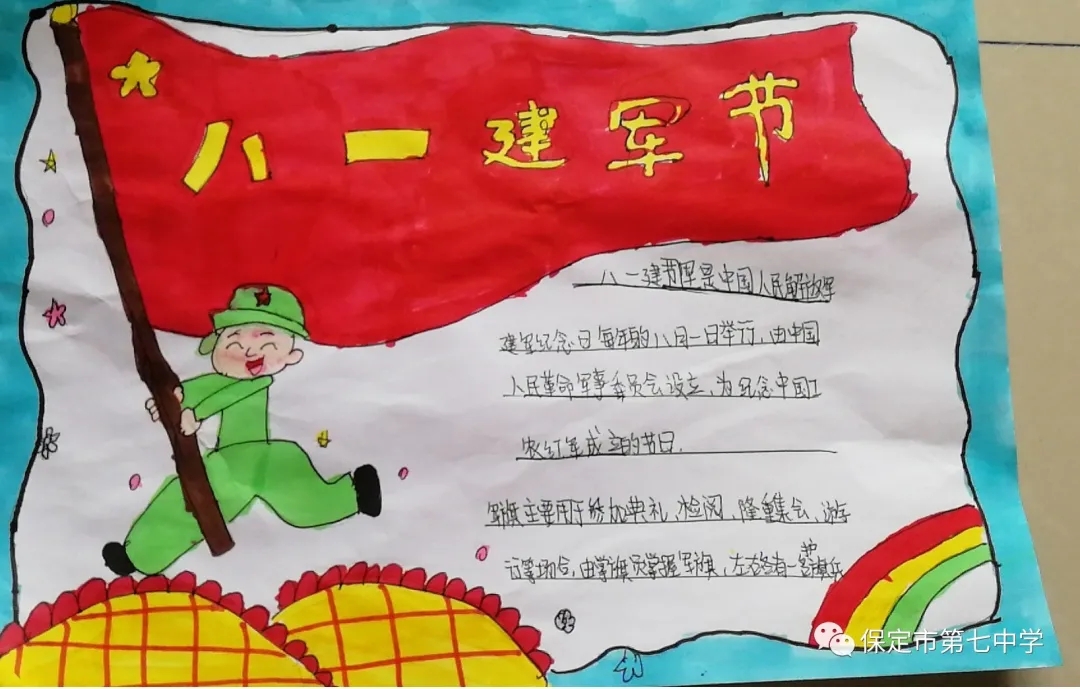 八一建军节
八一建节军是中国人民解放军
建军纪念日每年的八月一日举行,由中国
人民革命军事委员会设立,为纪念中国工
农红军成立的节日.
军旗主要用于参加典礼、检阅、隆重集会、游
行等场合,由掌旗员掌握军旗,左右各有一名护旗兵
保定市第七中学